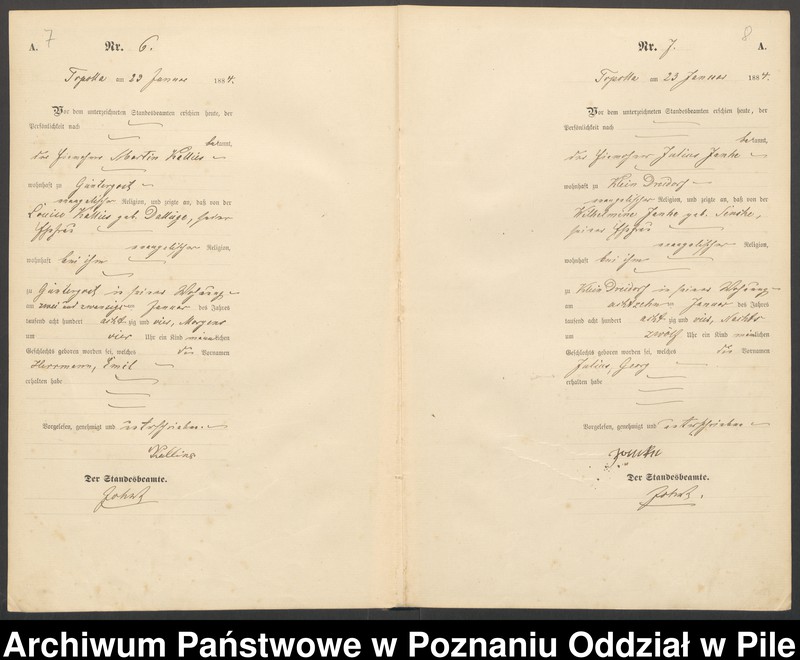 7
A. Nr. 6.
Topolla am 23 Januar 1884.
Vor dem unterzeichneten Standesbeamten erschien heute, der
Persönlichkeit nach
bekannt,
der Martin Kallies
wohnhaft zu Güntergost
evangelischer Religion, und zeigte an, daß von der
Louise Kallies geb. Dallüge, seiner
Ehefrau
evangelischer Religion,
wohnhaft bei ihm
zu Güntergost in seiner Wohnung
am zwei und zwanzigsten Januar des Jahres
tausend acht hundert achtzig und vier, Morgens
um vier Uhr ein Kind männlichen
Geschlechts geboren worden sei, welches die Vornamen
Herrmann, Emil
erhalten habe
Vorgelesen, genehmigt und unterschrieben.
Kallies
Der Standesbeamte.
8
Nr. 7. A.
Topolla am 23 Januar 1884.
Vor dem unterzeichneten Standesbeamten erschien heute, der
Persönlichkeit nach
bekannt,
der Julius Janke
wohnhaft zu Klein Dreidorf
evangelischer Religion, und zeigte an, daß von der
Wilhelmine Janke geb.
seiner Ehefrau
evangelischer Religion,
wohnhaft bei ihm
zu Klein Dreidorf in seiner Wohnung
am achtzehn Januar des Jahres
tausend acht hundert achtzig und vier, Nachts
um zwölf Uhr ein Kind männlichen
Geschlechts geboren worden sei, welches die Vornamen
Julius, Georg
erhalten habe
Vorgelesen, genehmigt und unterschrieben
Janke
Der Standesbeamte.
Archiwum Państwowe w Poznaniu Oddział w Pile